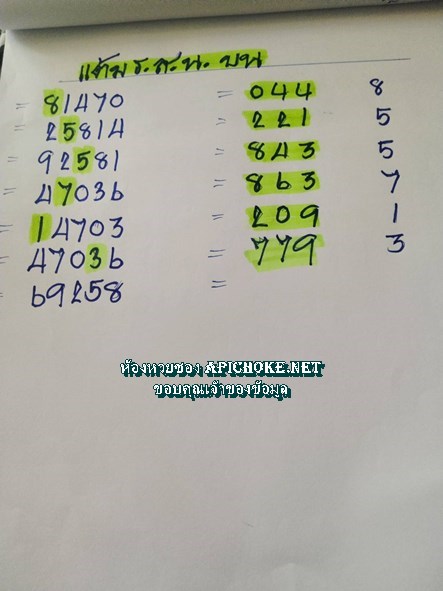 แต้ม ร.ส.น. บน
= 81470 = 044 8
= 25814 = 221 5
= 92581 = 843 5
= 47036 = 863 7
= 14703 = 209 1
= 47036 = 779 3
= 69258 =
ห้องหวยซอง APICHOKE.NET
ขอบคุณเจ้าของข้อมูล